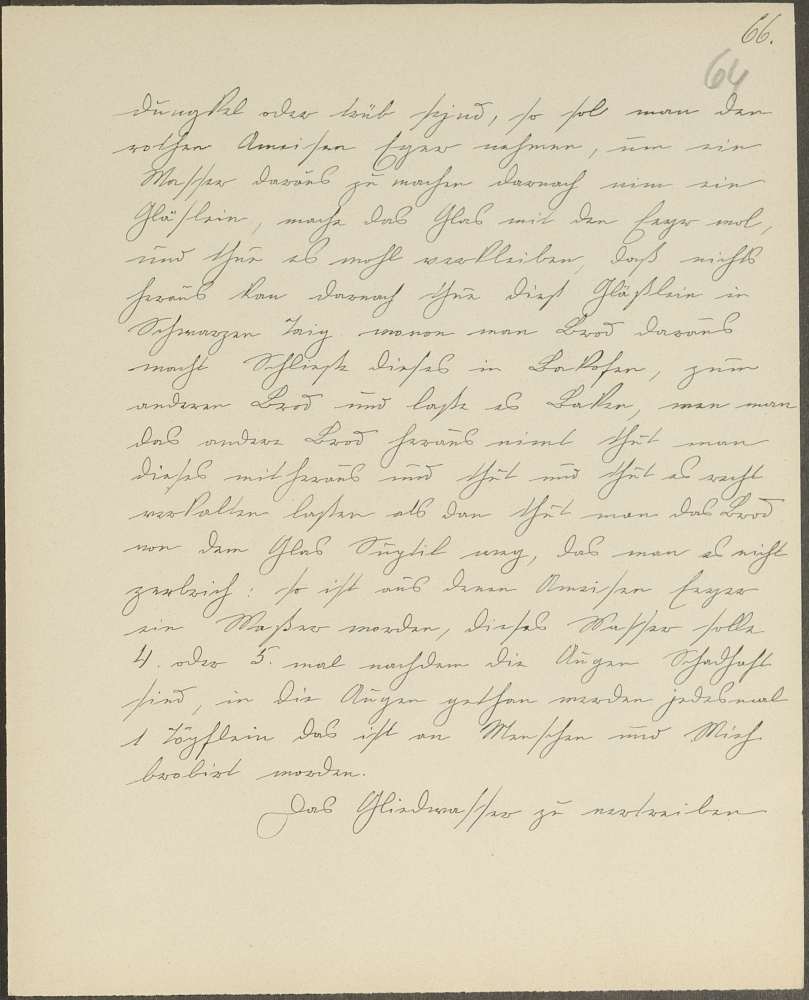 66.
64
dungkel oder trüb seynd, so sol man den
rothen Ameisen Eyer nehmen, um ein
Wasser daraus zu machen darnach nim ein
Gläslein, mache das Glas mit den Eeyr wol,
und thue es wohl verkleiben, daß nichts
heraus kan darnach thue dieß Gläßlein in
Schwarzen Taig wovon man Brod daraus
macht Schließe dieses in Bakofen, zum
anderen Brod und laße es Baken, wen man
das andere Brod heraus nimt thut man
dieses mit heraus und thut und thut es recht
verkalten laßen als dan thut man das Brod
von dem Glas Suptil weg, das man es nicht
zerbrich: so ist aus denen Ameisen Eeyer
ein Waßer worden, dieses Wasser solle
4. oder 5. mal nachdem die Augen Schadhaft
sind, in die Augen gethan werden jedesmal
1 Töpflein das ist an Menschen und Vieh
brobirt worden.
Das Gliedwasser zu vertreiben